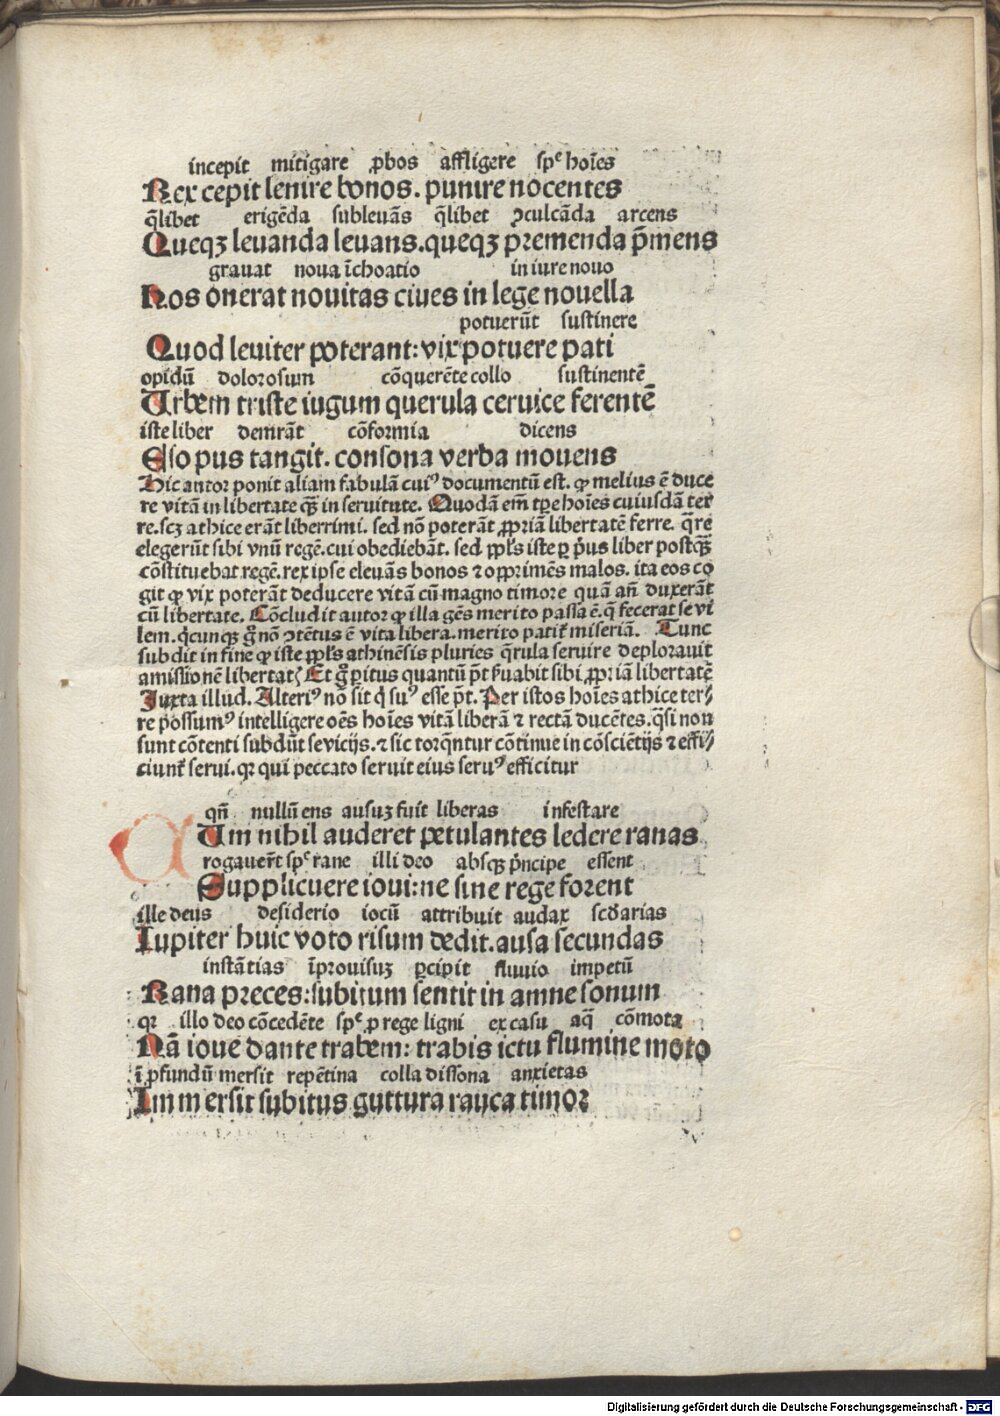 incepit mitigare ꝓbos affligere spᵉ hoīes
Rex cepit lenire bonos. punire nocentes
q̄libet erigēda subleuās q̄libet ꝯculcāda arcens
Queqꝫ leuanda leuans.queqꝫ premenda p̄mens
grauat noua īchoatio in iure nouo
Nos onerat nouitas ciues in lege nouella
potuerūt sustinere
Quod leuiter poterant: vix potuere pati
opidū dolorosum cōquerēte collo sustinentē
Urbem triste iugum querula ceruice ferentē
iste liber demrāt cōformia dicens
Esopus tangit. consona verba mouens
Hic autor ponit aliam fabulā cuiꝰ documentū est. ꝙ melius ē duce
re vitā in libertate qꝫ̄ in seruitute. Quodā em̄ tꝑe hoīes cuiusdā ter
re.scꝫ athice erāt liberrimi. sed nō poterāt ꝓpriā libertatē ferre. q̄re
elegerūt sibi vnū regē.cui obediebāt. sed ppl's iste ꝑ pꝰus liber postqꝫ̄
cōstituebat regē.rex ipse eleuās bonos ⁊ opprimēs malos. ita eos co
git ꝙ vix poterāt deducere vitā cū magno timore quā an̄ duxerāt
cū libertate. Cōcludit autor ꝙ illa gēs merito passa ē.q̇ fecerat se vi
lem.q̇cunqꝫ g̊ nō ꝯtētus ē vita libera.merito patit᷑ miseriā. Tunc
subdit in fine ꝙ iste ppl's athinēsis pluries q̄rula seruire deplorauit
amissionē libertatꝭ Et g̊ ꝑitus quantū p̄t ẜuabit sibi ꝓpriā libertatē
Juxta illud. Alteriꝰ nō sit q̇ suꝰ esse p̄t. Per istos hoīes athice ter⸗
re possumꝰ intelligere oēs hoīes vitā liberā ⁊ rectā ducētes. q̇si non
sunt cōtenti subdūt se vicijs.⁊ sic torq̄ntur cōtinue in cōsciētijs ⁊ effi⸗
ciunt᷑ serui.qꝛ qui peccato seruit eius seruꝰ efficitur
qn̄ nullū ens ausuꝫ fuit liberas infestare
CUm nihil auderet petulantes ledere ranas
rogauer̄t spᵉ rane illi deo absqꝫ p̄ncipe essent
Supplicuere ioui: ne sine rege forent
ille deus desiderio iocū attribuit audax scd'arias
Iupiter huic voto risum dedit.ausa secundas
instātias īprouisuꝫ ꝑcipit fluuio impetū
Rana preces: subitum sentit in amne sonum
qꝛ illo deo cōcedēte spᵉ ꝓ rege ligni ex casu aq̄ cōmota
Nā ioue dante trabem: trabis ictu flumine moto
ī ꝓfundū mersit repētina colla dissona anxietas
Immersit subitus guttura rauca timor
Digitalisierung gefördert durch die Deutsche Forschungsgemeinschaft - DFG